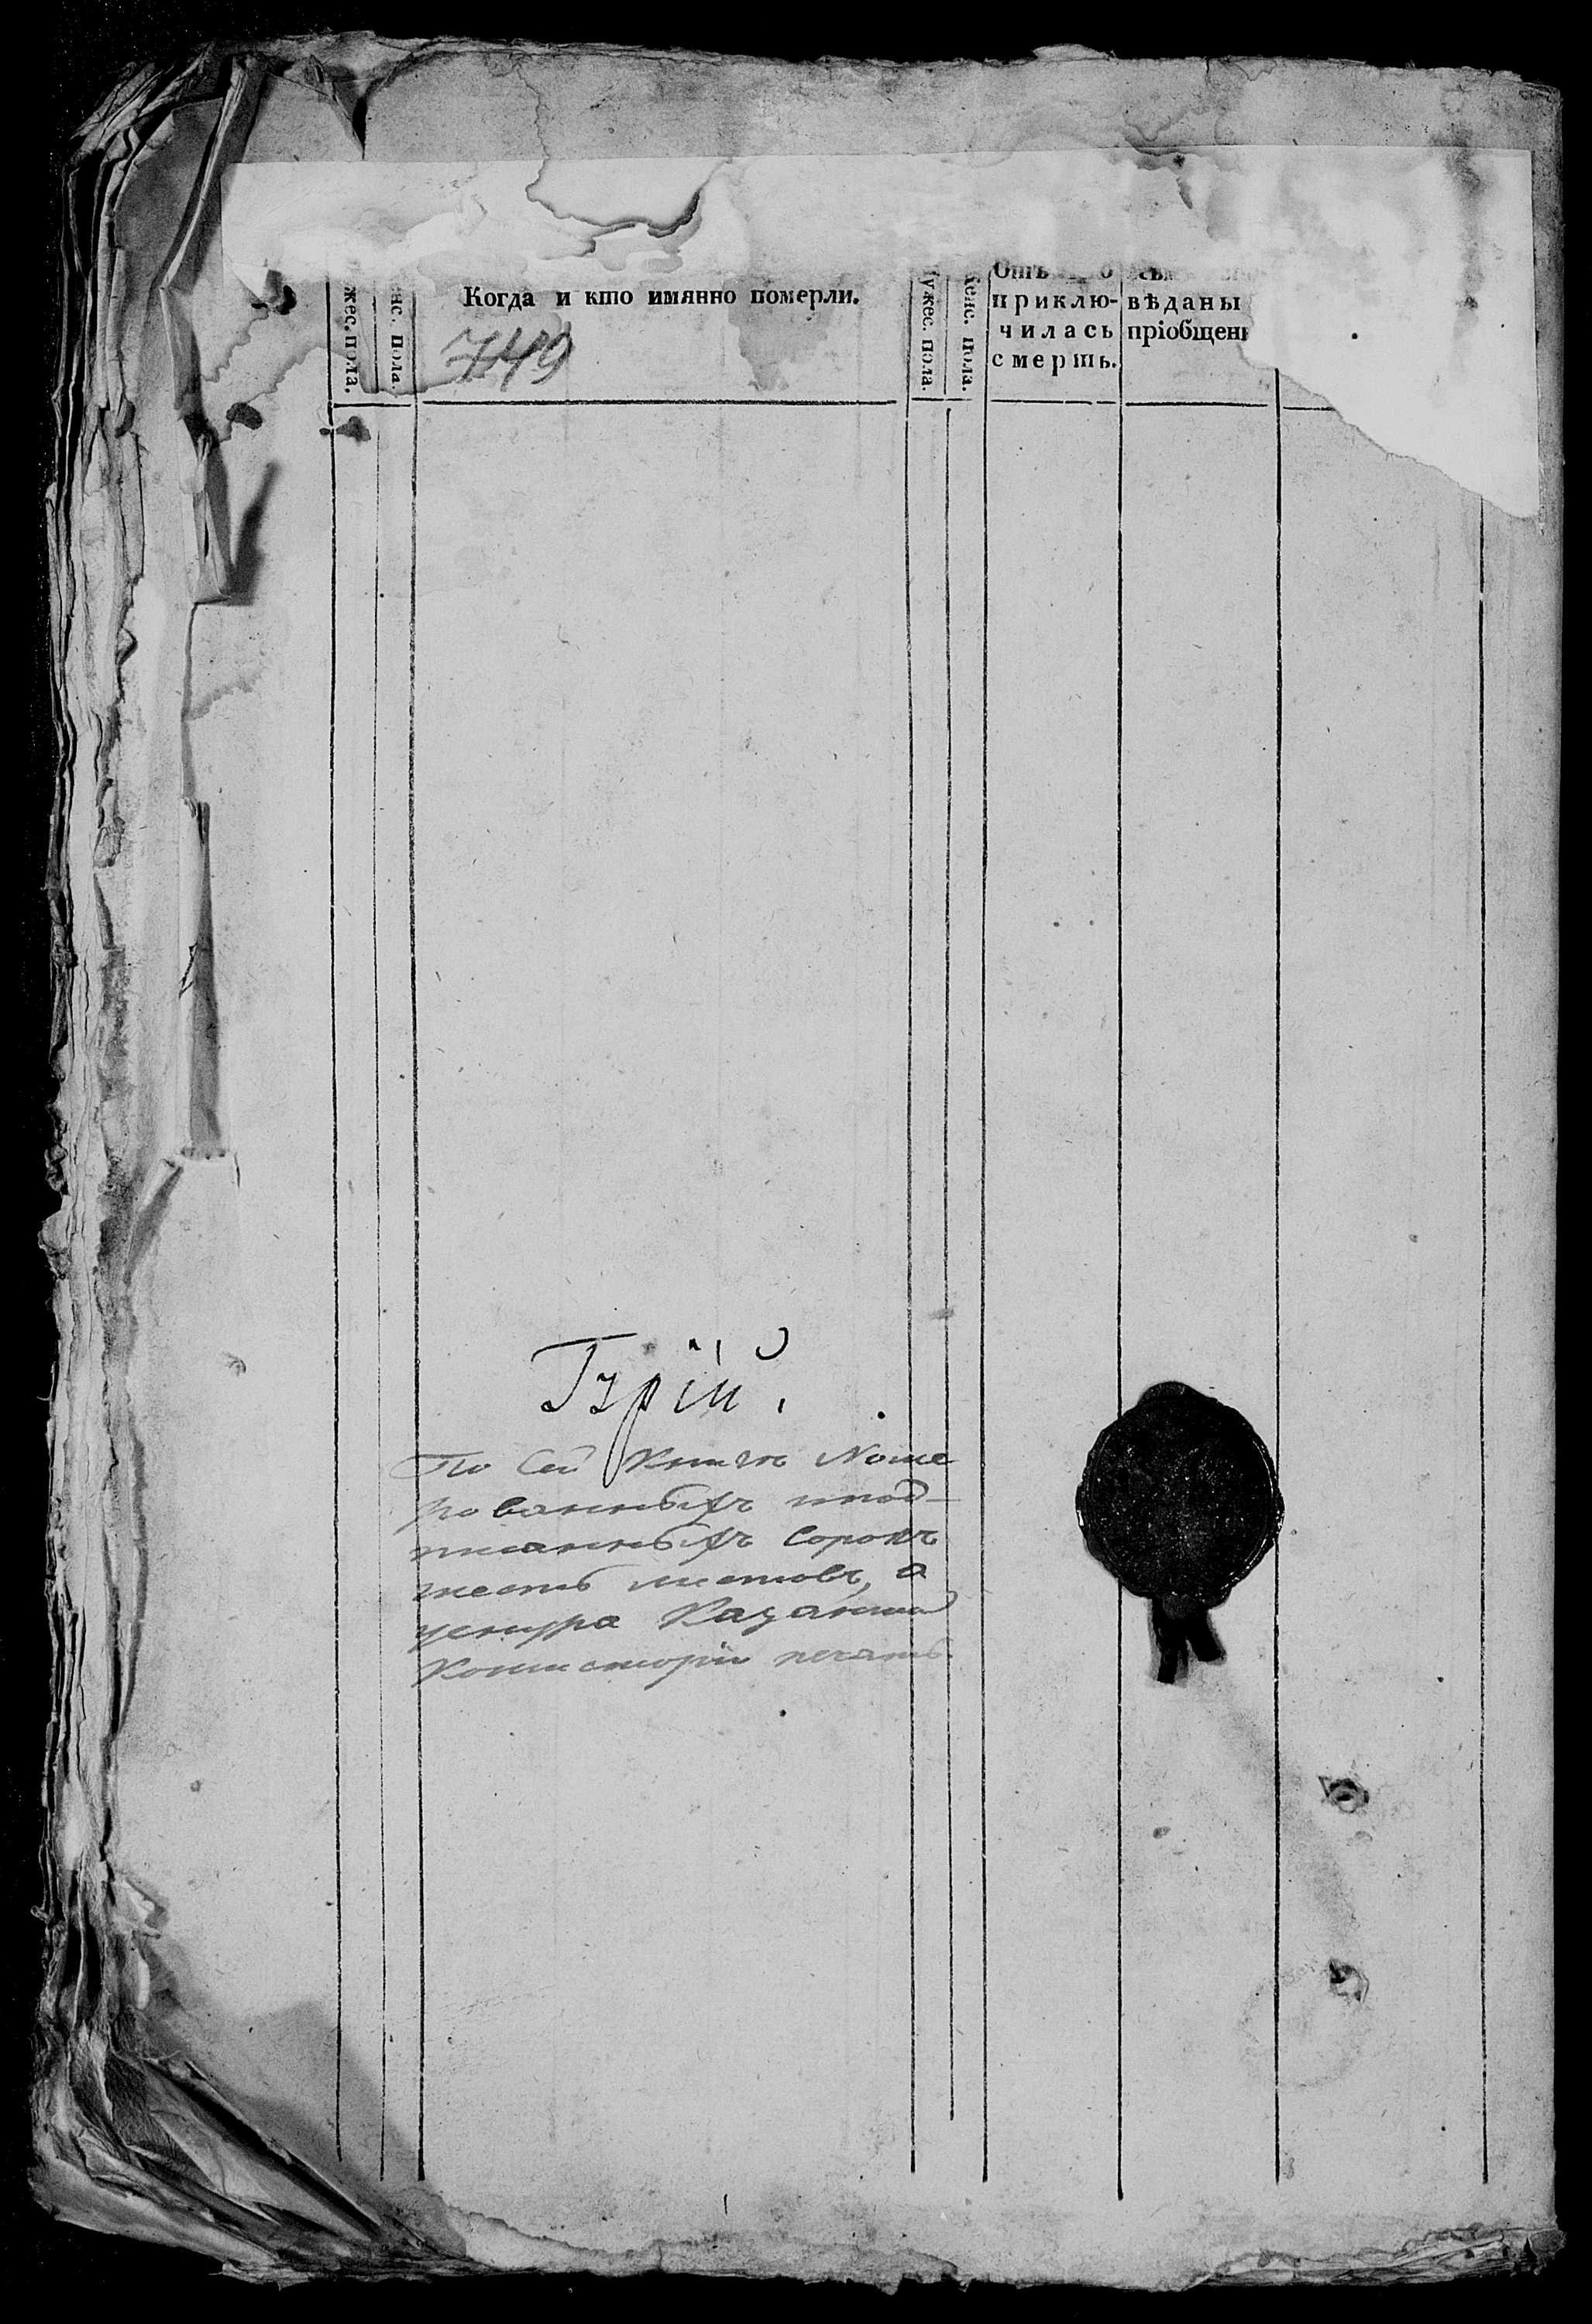 жес. пола.
нс. пола.
Когда и кто имянно померли.
ужес. пола.
женс. пола.
Отъ о
приклю-
чилась
смерть.
вѣданы
пріобщен
749
Гурій.
По Сей Книгѣ Номе
рованныхъ
писанныхъ Сорокъ
шесть листовъ, а
у шнура Казанской
Консисторіи печать.